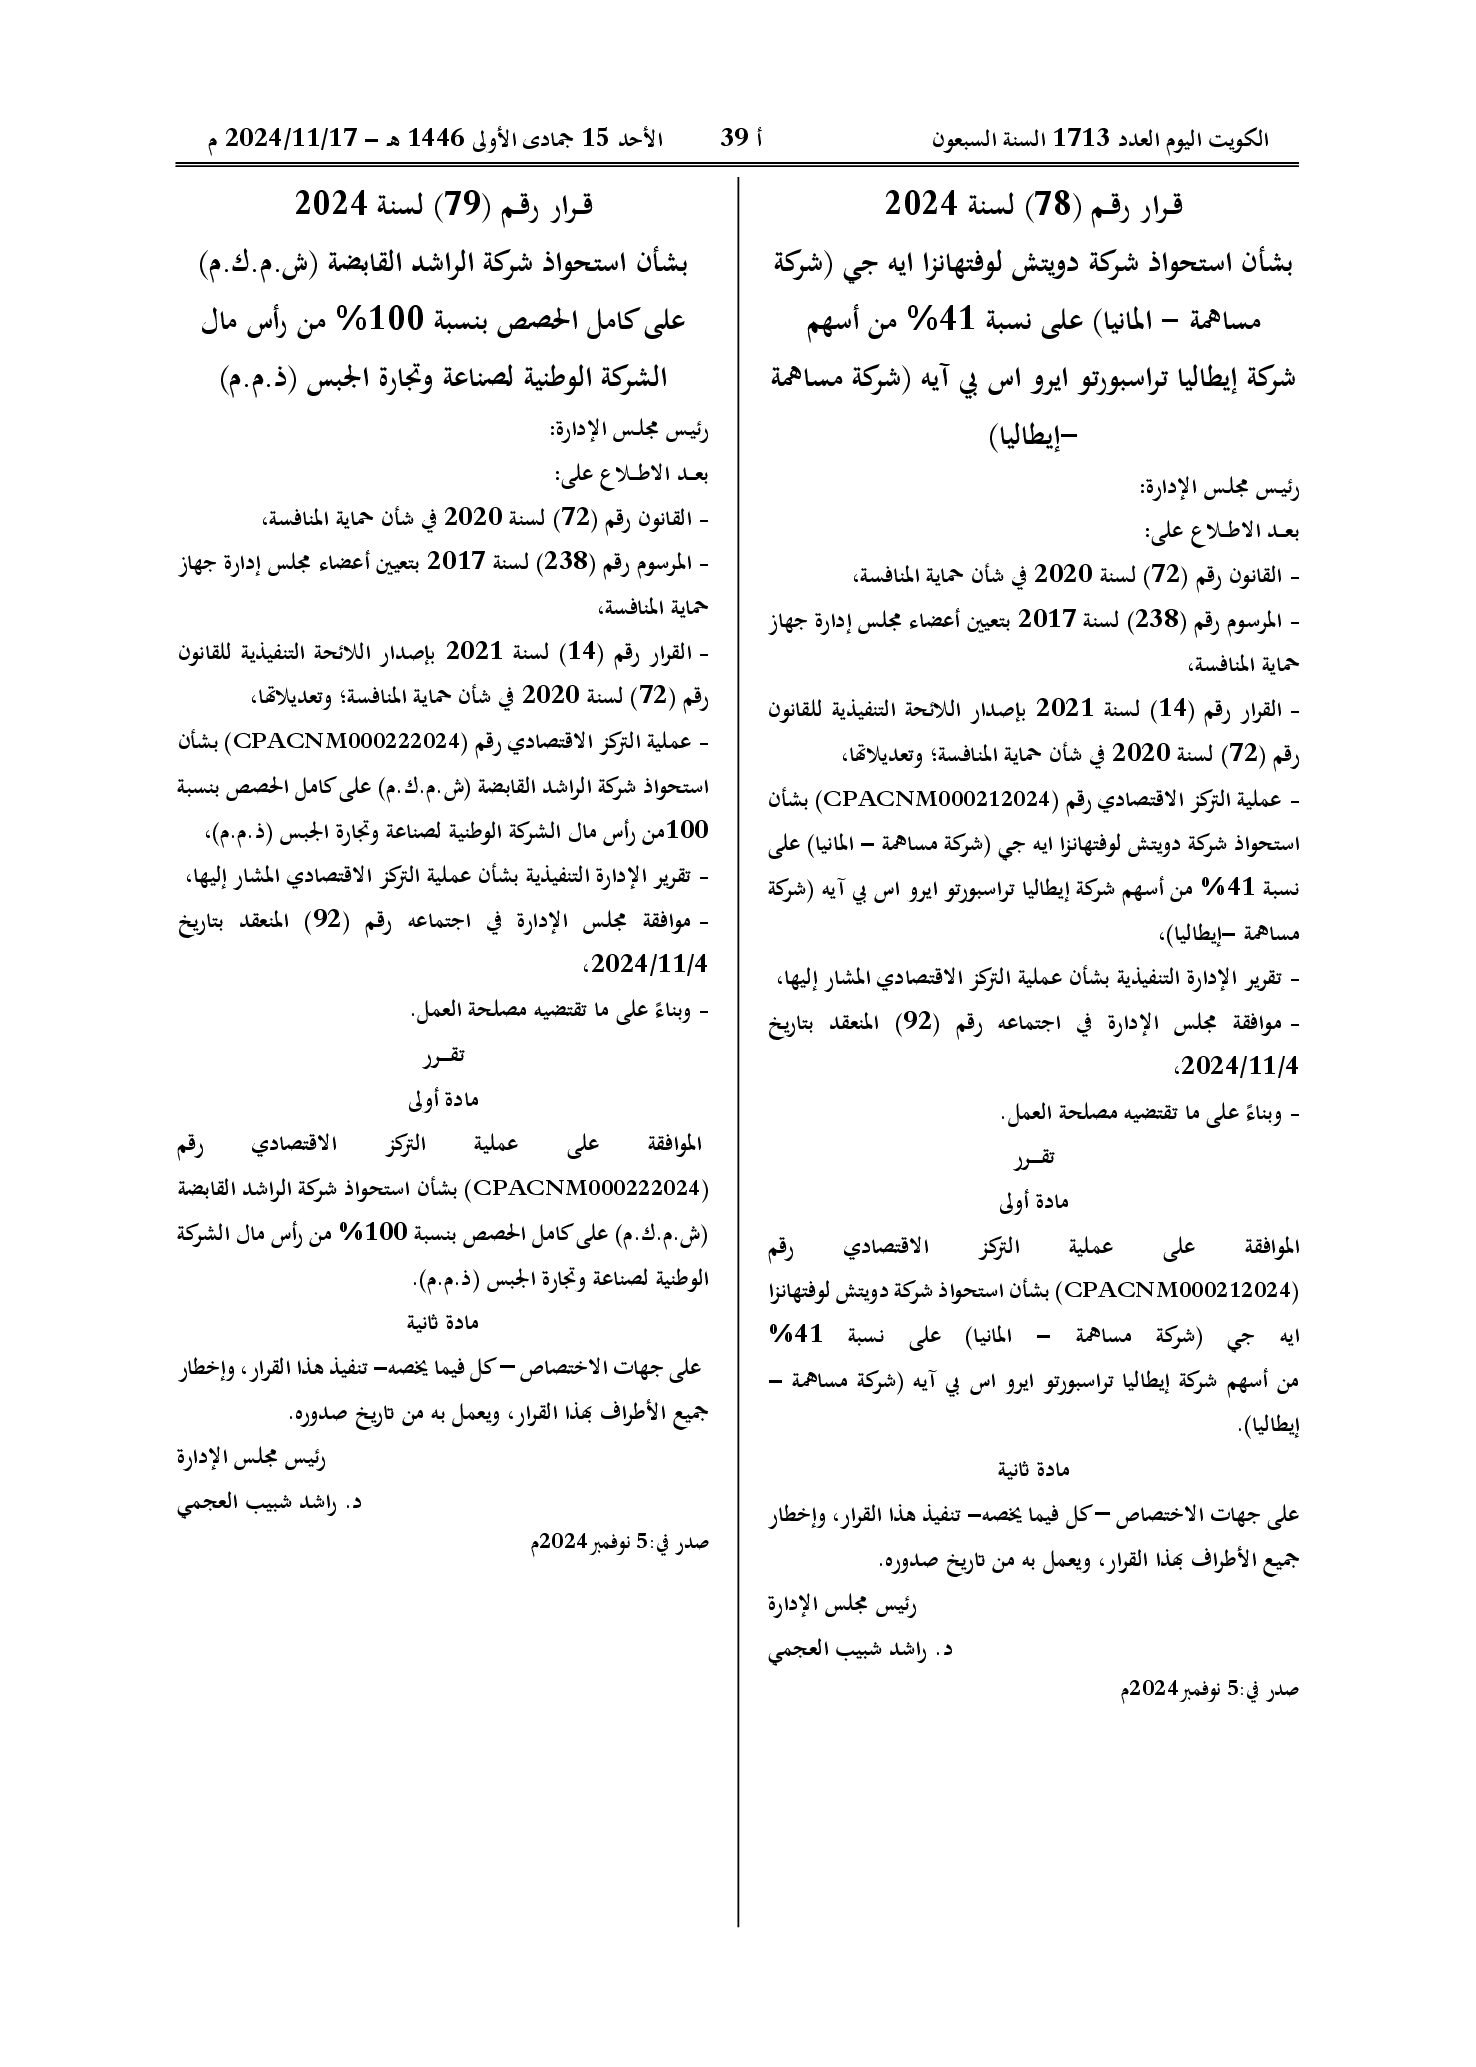 الكويت اليوم العدد 1713 السنة السبعون
أ 39
الأحد 15 جمادى الأولى 1446 هـ – 2024/11/17 م
قـرار رقـم (78) لسنة 2024
بشأن استحواذ شركة دويتش لوفتهانزا ايه جي (شركة
مساهمة – المانيا) على نسبة 41% من أسهم
شركة إيطاليا تراسبورتو ايرو اس بي آيه (شركة مساهمة
–إيطاليا)
رئيـس مجلس الإدارة:
بعـد الاطـلاع على:
- القانون رقم (72) لسنة 2020 في شأن حماية المنافسة،
- المرسوم رقم (238) لسنة 2017 بتعيين أعضاء مجلس إدارة جهاز
حماية المنافسة،
- القرار رقم (14) لسنة 2021 بإصدار اللائحة التنفيذية للقانون
رقم (72) لسنة 2020 في شأن حماية المنافسة؛ وتعديلاتها،
- عملية التركز الاقتصادي رقم (CPACNM000212024) بشأن
استحواذ شركة دويتش لوفتهانزا ايه جي (شركة مساهمة – المانيا) على
نسبة 41% من أسهم شركة إيطاليا تراسبورتو ايرو اس بي آيه (شركة
مساهمة –إيطاليا)،
- تقرير الإدارة التنفيذية بشأن عملية التركز الاقتصادي المشار إليها،
- موافقة مجلس الإدارة في اجتماعه رقم (92) المنعقد بتاريخ
2024/11/4،
- وبناءً على ما تقتضيه مصلحة العمل.
تقـــرر
مادة أولى
الموافقة على عملية التركز الاقتصادي رقم
(CPACNM000212024) بشأن استحواذ شركة دويتش لوفتهانزا
ايه جي (شركة مساهمة – المانيا) على نسبة 41%
من أسهم شركة إيطاليا تراسبورتو ايرو اس بي آيه (شركة مساهمة –
إيطاليا).
مادة ثانية
على جهات الاختصاص –كل فيما يخصه– تنفيذ هذا القرار، وإخطار
جميع الأطراف بهذا القرار، ويعمل به من تاريخ صدوره.
رئيس مجلس الإدارة
د. راشد شبيب العجمي
صدر في:5 نوفمبر2024م
قـرار رقـم (79) لسنة 2024
بشأن استحواذ شركة الراشد القابضة (ش.م.ك.م)
على كامل الحصص بنسبة 100% من رأس مال
الشركة الوطنية لصناعة وتجارة الجبس (ذ.م.م)
رئيـس مجلس الإدارة:
بعـد الاطـلاع على:
- القانون رقم (72) لسنة 2020 في شأن حماية المنافسة،
- المرسوم رقم (238) لسنة 2017 بتعيين أعضاء مجلس إدارة جهاز
حماية المنافسة،
- القرار رقم (14) لسنة 2021 بإصدار اللائحة التنفيذية للقانون
رقم (72) لسنة 2020 في شأن حماية المنافسة؛ وتعديلاتها،
- عملية التركز الاقتصادي رقم (CPACNM000222024) بشأن
استحواذ شركة الراشد القابضة (ش.م.ك.م) على كامل الحصص بنسبة
100من رأس مال الشركة الوطنية لصناعة وتجارة الجبس (ذ.م.م)،
- تقرير الإدارة التنفيذية بشأن عملية التركز الاقتصادي المشار إليها،
- موافقة مجلس الإدارة في اجتماعه رقم (92) المنعقد بتاريخ
2024/11/4،
- وبناءً على ما تقتضيه مصلحة العمل.
تقـــرر
مادة أولى
الموافقة على عملية التركز الاقتصادي رقم
(CPACNM000222024) بشأن استحواذ شركة الراشد القابضة
(ش.م.ك.م) على كامل الحصص بنسبة 100% من رأس مال الشركة
الوطنية لصناعة وتجارة الجبس (ذ.م.م).
مادة ثانية
على جهات الاختصاص –كل فيما يخصه– تنفيذ هذا القرار، وإخطار
جميع الأطراف بهذا القرار، ويعمل به من تاريخ صدوره.
رئيس مجلس الإدارة
د. راشد شبيب العجمي
صدر في:5 نوفمبر2024م